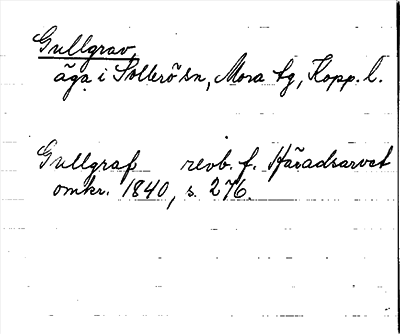 Gullgrav,
äga i Sollerö sn, Mora tg, Kopp. l.
Gullgraf revb. f. Häradsarvet
omkr. 1840, s. 276.